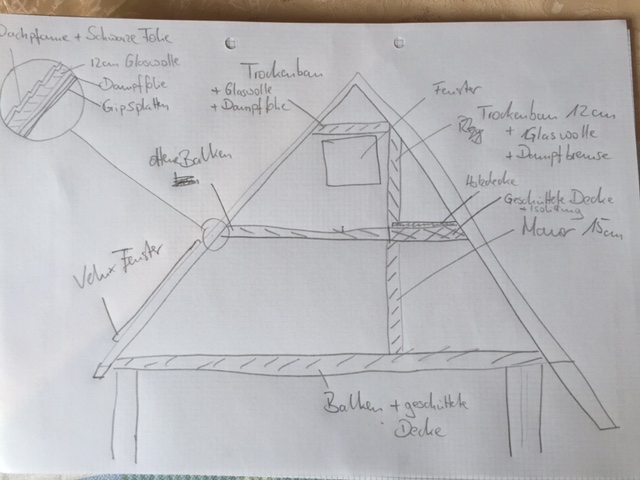 Dachpfanne + Schwarze Folie
12cm Glaswolle
Dampffolie
Gipsplatten
Trockenbau
+ Glaswolle
+ Dampffolie
Fenster
Trockenbau 12cm
+ Glaswolle
+ Dampfbremse
offene Balken
Holzdecke
Geschüttete Decke
+ Isolierung
Mauer 15cm
Velux Fenster
Balken + geschüttete
Decke